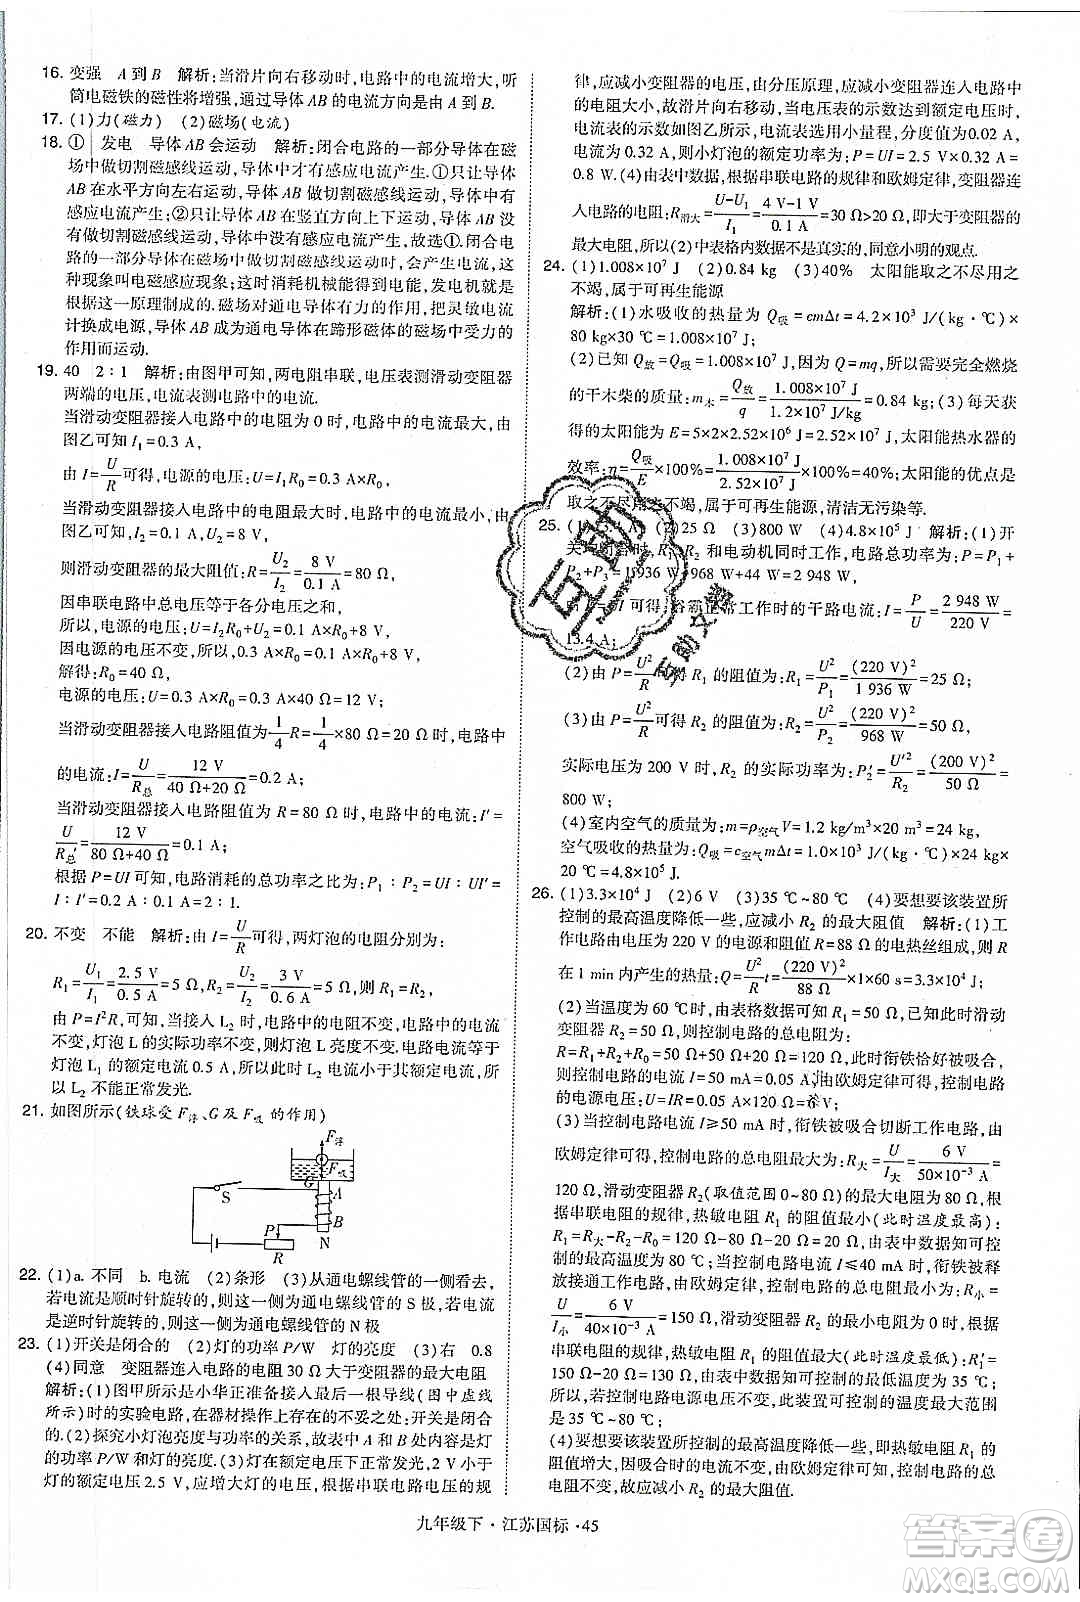 16. 变强　A 到 B　解析:当滑片向右移动时,电路中的电流增大,听
筒电磁铁的磁性将增强,通过导体 AB 的电流方向是由 A 到 B.
17. (1)力(磁力)　(2)磁场(电流)
18. ①　发电　导体 AB 会运动　解析:闭合电路的一部分导体在磁
场中做切割磁感线运动,导体中才有感应电流产生.①只让导体
AB 在水平方向左右运动,导体 AB 做切割磁感线运动,导体中有
感应电流产生;②只让导体 AB 在竖直方向上下运动,导体 AB 没
有做切割磁感线运动,导体中没有感应电流产生,故选①.闭合电
路的一部分导体在磁场中做切割磁感线运动时,会产生电流,这
种现象叫电磁感应现象;这时消耗机械能得到电能,发电机就是
根据这一原理制成的.磁场对通电导体有力的作用,把灵敏电流
计换成电源,导体 AB 成为通电导体在蹄形磁体的磁场中受力的
作用而运动.
19. 40　2∶1　解析:由图甲可知,两电阻串联,电压表测滑动变阻器
两端的电压,电流表测电路中的电流.
当滑动变阻器接入电路中的电阻为 0 时,电路中的电流最大,由
图乙可知 I₁=0.3 A,
由 I=U/R可得,电源的电压:U=I₁R₀=0.3 A×R₀,
当滑动变阻器接入电路中的电阻最大时,电路中的电流最小,由
图乙可知,I₂=0.1 A,U₂=8 V,
则滑动变阻器的最大阻值:R=U₂/I₂=8 V/0.1 A=80 Ω,
因串联电路中总电压等于各分电压之和,
所以,电源的电压:U=I₂R₀+U₂=0.1 A×R₀+8 V,
因电源的电压不变,所以,0.3 A×R₀=0.1 A×R₀+8 V,
解得:R₀=40 Ω,
电源的电压:U=0.3 A×R₀=0.3 A×40 Ω=12 V,
当滑动变阻器接入电路阻值为1/4R=1/4×80 Ω=20 Ω时,电路中
的电流:I=U/R总=12 V/40 Ω+20 Ω=0.2 A;
当滑动变阻器接入电路阻值为 R=80 Ω时,电路中的电流:I′=
U/R总′=12 V/80 Ω+40 Ω=0.1 A;
根据 P=UI 可知,电路消耗的总功率之比:P₁∶P₂=UI∶UI′=
I∶I′=0.2 A∶0.1 A=2∶1.
20. 不变　不能　解析:由 I=U/R可得,两灯泡的电阻分别为:
R₁=U₁/I₁=2.5 V/0.5 A=5 Ω,R₂=U₂/I₂=3 V/0.6 A=5 Ω;
由 P=I²R,可知,当接入 L₂ 时,电路中的电阻不变,电路中的电流
不变,灯泡 L 的实际功率不变,则灯泡 L 亮度不变.电路电流等于
灯泡 L₁ 的额定电流 0.5 A,小于灯泡 L₂ 的额定电流 0.6 A,所
以 L₂ 不能正常发光.
21. 如图所示(铁球受 F浮、G 及 F吸 的作用)
F浮
F吸
G
S
A
B
P
N
R
22. (1)a. 不同　b. 电流　(2)条形　(3)从通电螺线管的一侧看去,
若电流是顺时针旋转的,则这一侧为通电螺线管的 S 极,若电流
是逆时针旋转的,则这一侧为通电螺线管的 N 极
23. (1)开关是闭合的　(2)灯的功率 P/W　灯的亮度　(3)右　0.8
(4)同意　变阻器连入电路的电阻 30 Ω大于变阻器的最大电阻
解析:(1)图甲所示是小华正准备接入最后一根导线(图中虚线
所示)时的实验电路,在器材操作上存在的不妥之处:开关是闭合
的.(2)探究小灯泡亮度与功率的关系,故表中 A 和 B 处内容是灯
的功率 P/W 和灯的亮度.(3)灯在额定电压下发光,图中 2 V 小于
灯的额定电压 2.5 V,应增大灯的电压,根据串联电路电压的规
律,应减小变阻器的电压,由分压原理,应减小变阻器连入电路中
的电阻大小,故滑片向右移动,当电压表的示数达到额定电压时,
电流表的示数如图乙所示,电流表选用小量程,分度值为 0.02 A,
电流为 0.32 A,则小灯泡的额定功率为:P=UI=2.5 V×0.32 A=
0.8 W.(4)由表中数据,根据串联电路的规律和欧姆定律,变阻器连
入电路的电阻:R滑大=U−U₁/I₁=4 V−1 V/0.1 A=30 Ω>20 Ω,即大于变阻器的
最大电阻,所以(2)中表格内数据不是真实的,同意小明的观点.
24. (1)1.008×10⁷ J　(2)0.84 kg　(3)40%　太阳能取之不尽用之
不竭,属于可再生能源
解析:(1)水吸收的热量为 Q吸=cmΔt=4.2×10³ J/(kg·℃)×
60 kg×30 ℃=1.008×10⁷ J;
(2)已知 Q放=Q吸=1.008×10⁷ J,因为 Q=mq,所以需完全燃烧
的干木柴的质量:m木=Q放/q=1.008×10⁷ J/1.2×10⁷ J/kg=0.84 kg;(3)每天获
得的太阳能为 E=5×2×2.52×10⁶ J=2.52×10⁷ J,太阳能热水器的
效率:η=Q吸/E×100%=1.008×10⁷ J/2.52×10⁷ J×100%=40%;太阳能的优点是
取之不尽用之不竭,属于可再生能源,清洁无污染等.
25. (1)13.4 A　(2)25 Ω　(3)800 W　(4)4.8×10⁵ J　解析:(1)开
关均闭合时,R₁、R₂ 和电动机同时工作,电路总功率为 P=P₁+
P₂+P₃=1 936 W+968 W+44 W=2 948 W,
由 P=UI 可得,浴霸正常工作时的干路电流:I=P/U=2 948 W/220 V=
13.4 A;
(2)由 P=U²/R可得 R₁ 的阻值:R₁=U²/P₁=(220 V)²/1 936 W=25 Ω;
(3)由 P=U²/R可得 R₂ 的阻值:R₂=U²/P₂=(220 V)²/968 W=50 Ω,
实际电压为 200 V 时,R₂ 的实际功率为:P₂′=U′²/R₂=(200 V)²/50 Ω=
800 W;
(4)室内空气的质量为:m=ρ空气V=1.2 kg/m³×20 m³=24 kg,
空气吸收的热量为:Q吸=c空气mΔt=1.0×10³ J/(kg·℃)×24 kg×
20 ℃=4.8×10⁵ J.
26. (1)3.3×10⁴ J　(2)6 V　(3)35 ℃~80 ℃　(4)要想使该装置所
控制的最高温度降低一些,应减小 R₂ 的最大阻值　解析:(1)工
作电路由电压为 220 V 的电源和阻值 R=88 Ω的电热丝组成,则 R
在 1 min 内产生的热量:Q=U²/R t=(220 V)²/88 Ω×1×60 s=3.3×10⁴ J;
(2)当温度为 60 ℃时,由表格数据可知 R₁=50 Ω,已知此时滑动
变阻器 R₂=50 Ω,则控制电路的总电阻为:
R=R₁+R₂+R₀=50 Ω+50 Ω+20 Ω=120 Ω,此时衔铁恰好被吸合,
则控制电路的电流 I=50 mA=0.05 A,由欧姆定律可得,控制电路的
电源电压:U=IR=0.05 A×120 Ω=6 V;
(3)当控制电路电流 I≥50 mA 时,衔铁被吸合切断工作电路,由
欧姆定律可得,控制电路的总电阻最大为:R大=U/I大=6 V/50×10⁻³ A=
120 Ω,滑动变阻器 R₂(取值范围 0~80 Ω)的最大电阻为 80 Ω,根
据串联电阻的规律,热敏电阻 R₁ 的阻值最小(此时温度最高):
R₁=R大−R₂大−R₀=120 Ω−80 Ω−20 Ω=20 Ω,由表中数据可知,可控
制的最高温度为 80 ℃;当控制电路电流 I≤40 mA 时,衔铁被释
放接通工作电路,由欧姆定律可得,控制电路的总电阻最小为:R小=
U/I小=6 V/40×10⁻³ A=150 Ω,滑动变阻器的最小值为 0,根据电阻的
串联电路可知,热敏电阻的最大阻值(此时温度最低):R₁′=R小−
R₀=150 Ω−20 Ω=130 Ω,由表中数据可知,此时最低温度为 35 ℃,
所以,若控制电路电源电压不变,此装置可控制的温度最大范围
是 35 ℃~80 ℃;
(4)要想使该装置所控制的最高温度降低一些,即热敏电阻 R₁ 的
阻值增大些,因吸合的电流不变,由欧姆定律可知,控制电路的总
电阻不变,故应减小 R₂ 的最大阻值.
九年级下·江苏国标·45
互助
互助文库
答案圈
MXQE.COM